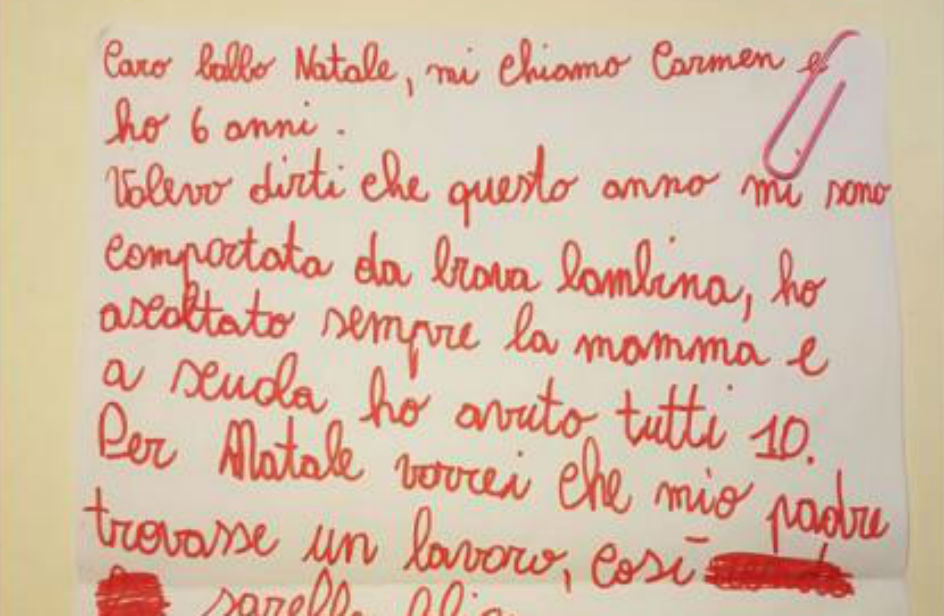 Caro babbo Natale, mi chiamo Carmen e
ho 6 anni.
Volevo dirti che questo anno mi sono
comportata da brava bambina, ho
ascoltato sempre la mamma e
a scuola ho avuto tutti 10.
Per Natale vorrei che mio padre
trovasse un lavoro, così